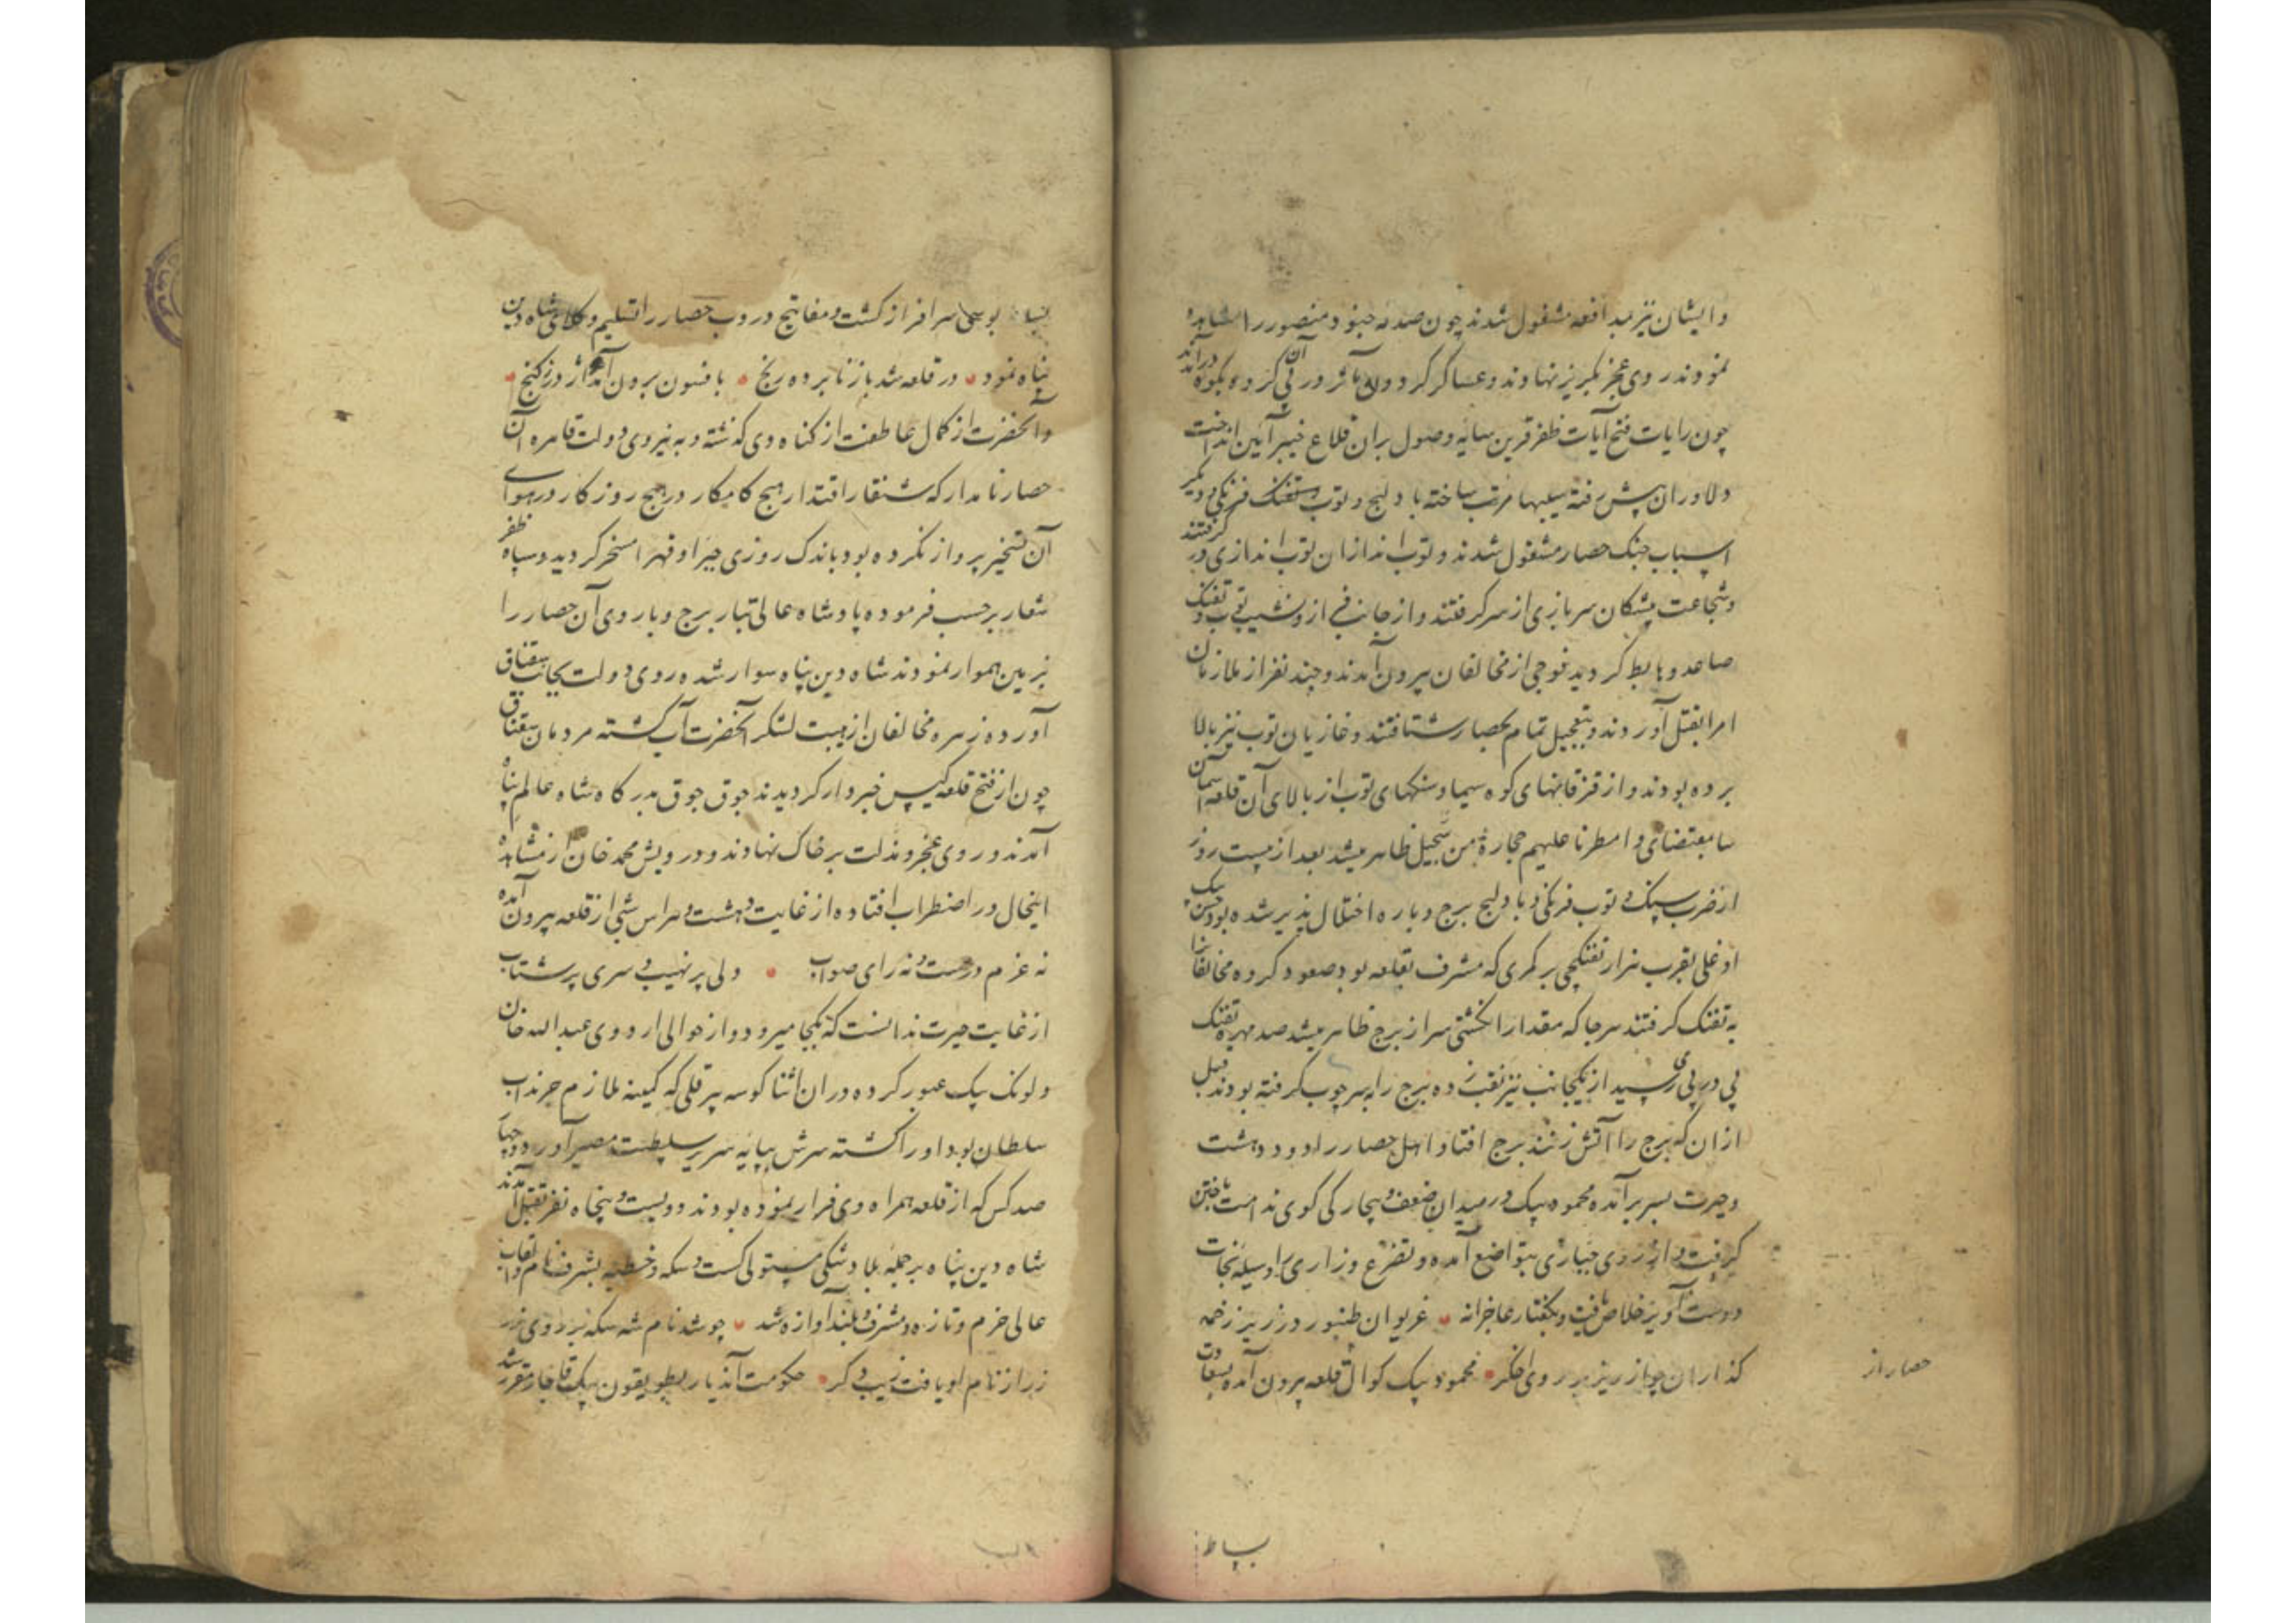 و ایشان نیز بمدافعه مشغول شدند چون صدمه جنود منصور را مشاهده
نمودند روی عجز بگریز نهادند و عساکر گردون مآثر در پی آن گروه بکوه درآمدند
چون رایات فتح آیات ظفر قرین سایه وصول بران قلاع خیبر آئین انداخت
دلاوران پیش رفته سیبها مرتب ساخته با دلیج و توب و تفنک فرنکی و دیگر
اسباب جنک حصار مشغول شدند و توب اندازان توب اندازی در گرفتند
و شجاعت پیشکان سربازی از سر گرفتند و از جانبی از ونشیب توب و تفنک
صاعد و هابط کردید فوجی از مخالفان بیرون آمدند و چند نفر از ملازمان
امرا بقتل آوردند و بتعجیل تمام بحصار شتافتند و غازیان توب نیز بالا
برده بودند و از قزقانهای کوه سیما و سنکهای توب از بالای آن قلعه آسمان
سا بمقتضای و امطرنا علیهم حجارة من سجیل ظاهر میشد بعد از بیست روز
از ضرب سنک و توب فرنکی و بادلیج برج و باره اختلال پذیر شده بود حسن بیک
اوغلی بقرب هزار تفنکچی بر کمری که مشرف بقلعه بود صعود کرده مخالفانرا
به تفنک گرفتند هر جا که مقدار انکشتی سر از برج ظاهر میشد صد مهره تفنک
پی در پی میرسید از یکجانب نیز نقب زده برج را بر سر چوب گرفته بودند قبل
از ان که برج را آتش زنند برج افتاد اهل حصار را دود دهشت
و حیرت بسر بر آمده محمود بیک در میدان ضعف و بیچارکی کوی ندامت باختن
گرفت و از روی جباری بتواضع آمده و تضرع و زاری را وسیله نجات
و دست آویز خلاص یافت و بکفتار عاجزانه غریوان طنبور در زیر زخمه
گذاران چو از ریز بر روی اخکر محمود بیک کوتوال قلعه بیرون آمده بسعادت
حصار از
بساط
بساط بوسی سرافراز کشت و مفاتیح دروب حصار را تسلیم وکلای شاه دین
پناه نمود در قلعه شد باز نابرده رنج بافسون برون آمد اژدر ز کنج
و آنحضرت از کمال عاطفت از کناه وی کذشته و به نیروی دولت قاهره آن
حصار نامدار که شنقار اقتدار هیچ کامکار در هیچ روزکار در هوای
آن تسخیر پرواز نکرده بود باندک روزی جبرا و قهرا مسخر کردید و سپاه ظفر
شعار بر حسب فرموده پادشاه عالی تبار برج و باروی آن حصار را
بزمین هموار نمودند شاه دین پناه سوار شده روی دولت بجانب سقناق
آورده زهره مخالفان از هیبت لشکر آنحضرت آب کشته مردمان سقناق
چون از فتح قلعه کیس خبردار کردیدند جوق جوق بدرکاه شاه عالم پناه
آمدند و روی عجز و مذلت بر خاک نهادند و درویش محمد خان از مشاهده
اینحال در اضطراب افتاده از غایت دهشت و هراس شبی از قلعه بیرون آمده
نه عزم درست و نه رای صواب ولی پر نهیب و سری پر شتاب
از غایت حیرت ندانست که بکجا میرود و از حوالی اردوی عبدالله خان
و لوند بیک عبور کرده در ان اثنا کوسه پیر قلی که کمینه ملازم چرنداب
سلطان بود او را کشته سرش بپایه سریر سلطنت مصیر آورد و چهار
صد کس که از قلعه همراه وی فرار نموده بودند دویست و پنجاه نفر بقتل آمدند
شاه دین پناه بر جمله بلاد شکی مستولی کشت و سکه و خطبه بشرف نام و القاب
عالی خرم و تازه و مشرف و بلند آوازه شد چو شد نام شه سکه بر روی زر
زر از نام او یافت زیب دگر حکومت آندیار بطویقون بیک قاجار مقرر شد